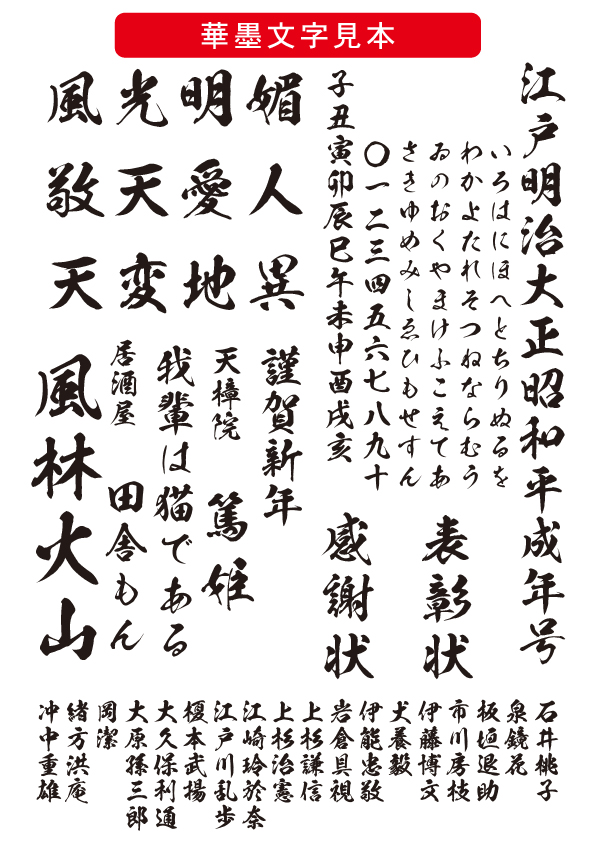 華墨文字見本
江戸明治大正昭和平成年号
いろはにほへとちりぬるを
わかよたれそつねならむう
ゐのおくやまけふこえてあ
さきゆめみしゑひもせすん
〇一二三四五六七八九十
子丑寅卯辰巳午未申酉戌亥
表彰状
感謝状
媚人異
明愛地
光天変
風敬天
謹賀新年
天樟院 篤姫
我輩は猫である
居酒屋 田舎もん
風林火山
石井桃子
泉鏡花
板垣退助
市川房枝
伊藤博文
犬養毅
伊能忠敬
岩倉具視
上杉謙信
上杉治憲
江崎玲於奈
江戸川乱歩
榎本武揚
大久保利通
大原孫三郎
岡潔
緒方洪庵
沖中重雄